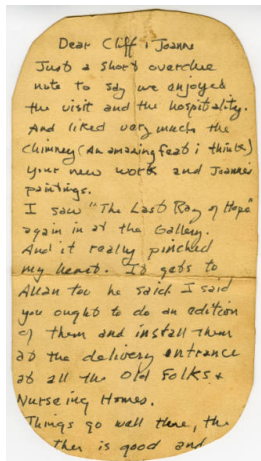 Dear Cliff & Joanne
Just a short overdue
note to say we enjoyed
the visit and the hospitality.
And liked very much the
chimney (An amazing feat i think)
your new work and Joannes
paintings.
I saw "The Last Ray of Hope"
again in at the Gallery.
And it really pinched
my heart. It gets to
Allan too he said. I said
you ought to do an edition
of them and install them
at the delivery entrance
at all the Old Folks &
Nurseing Homes.
Things go well there, the
ther is good and